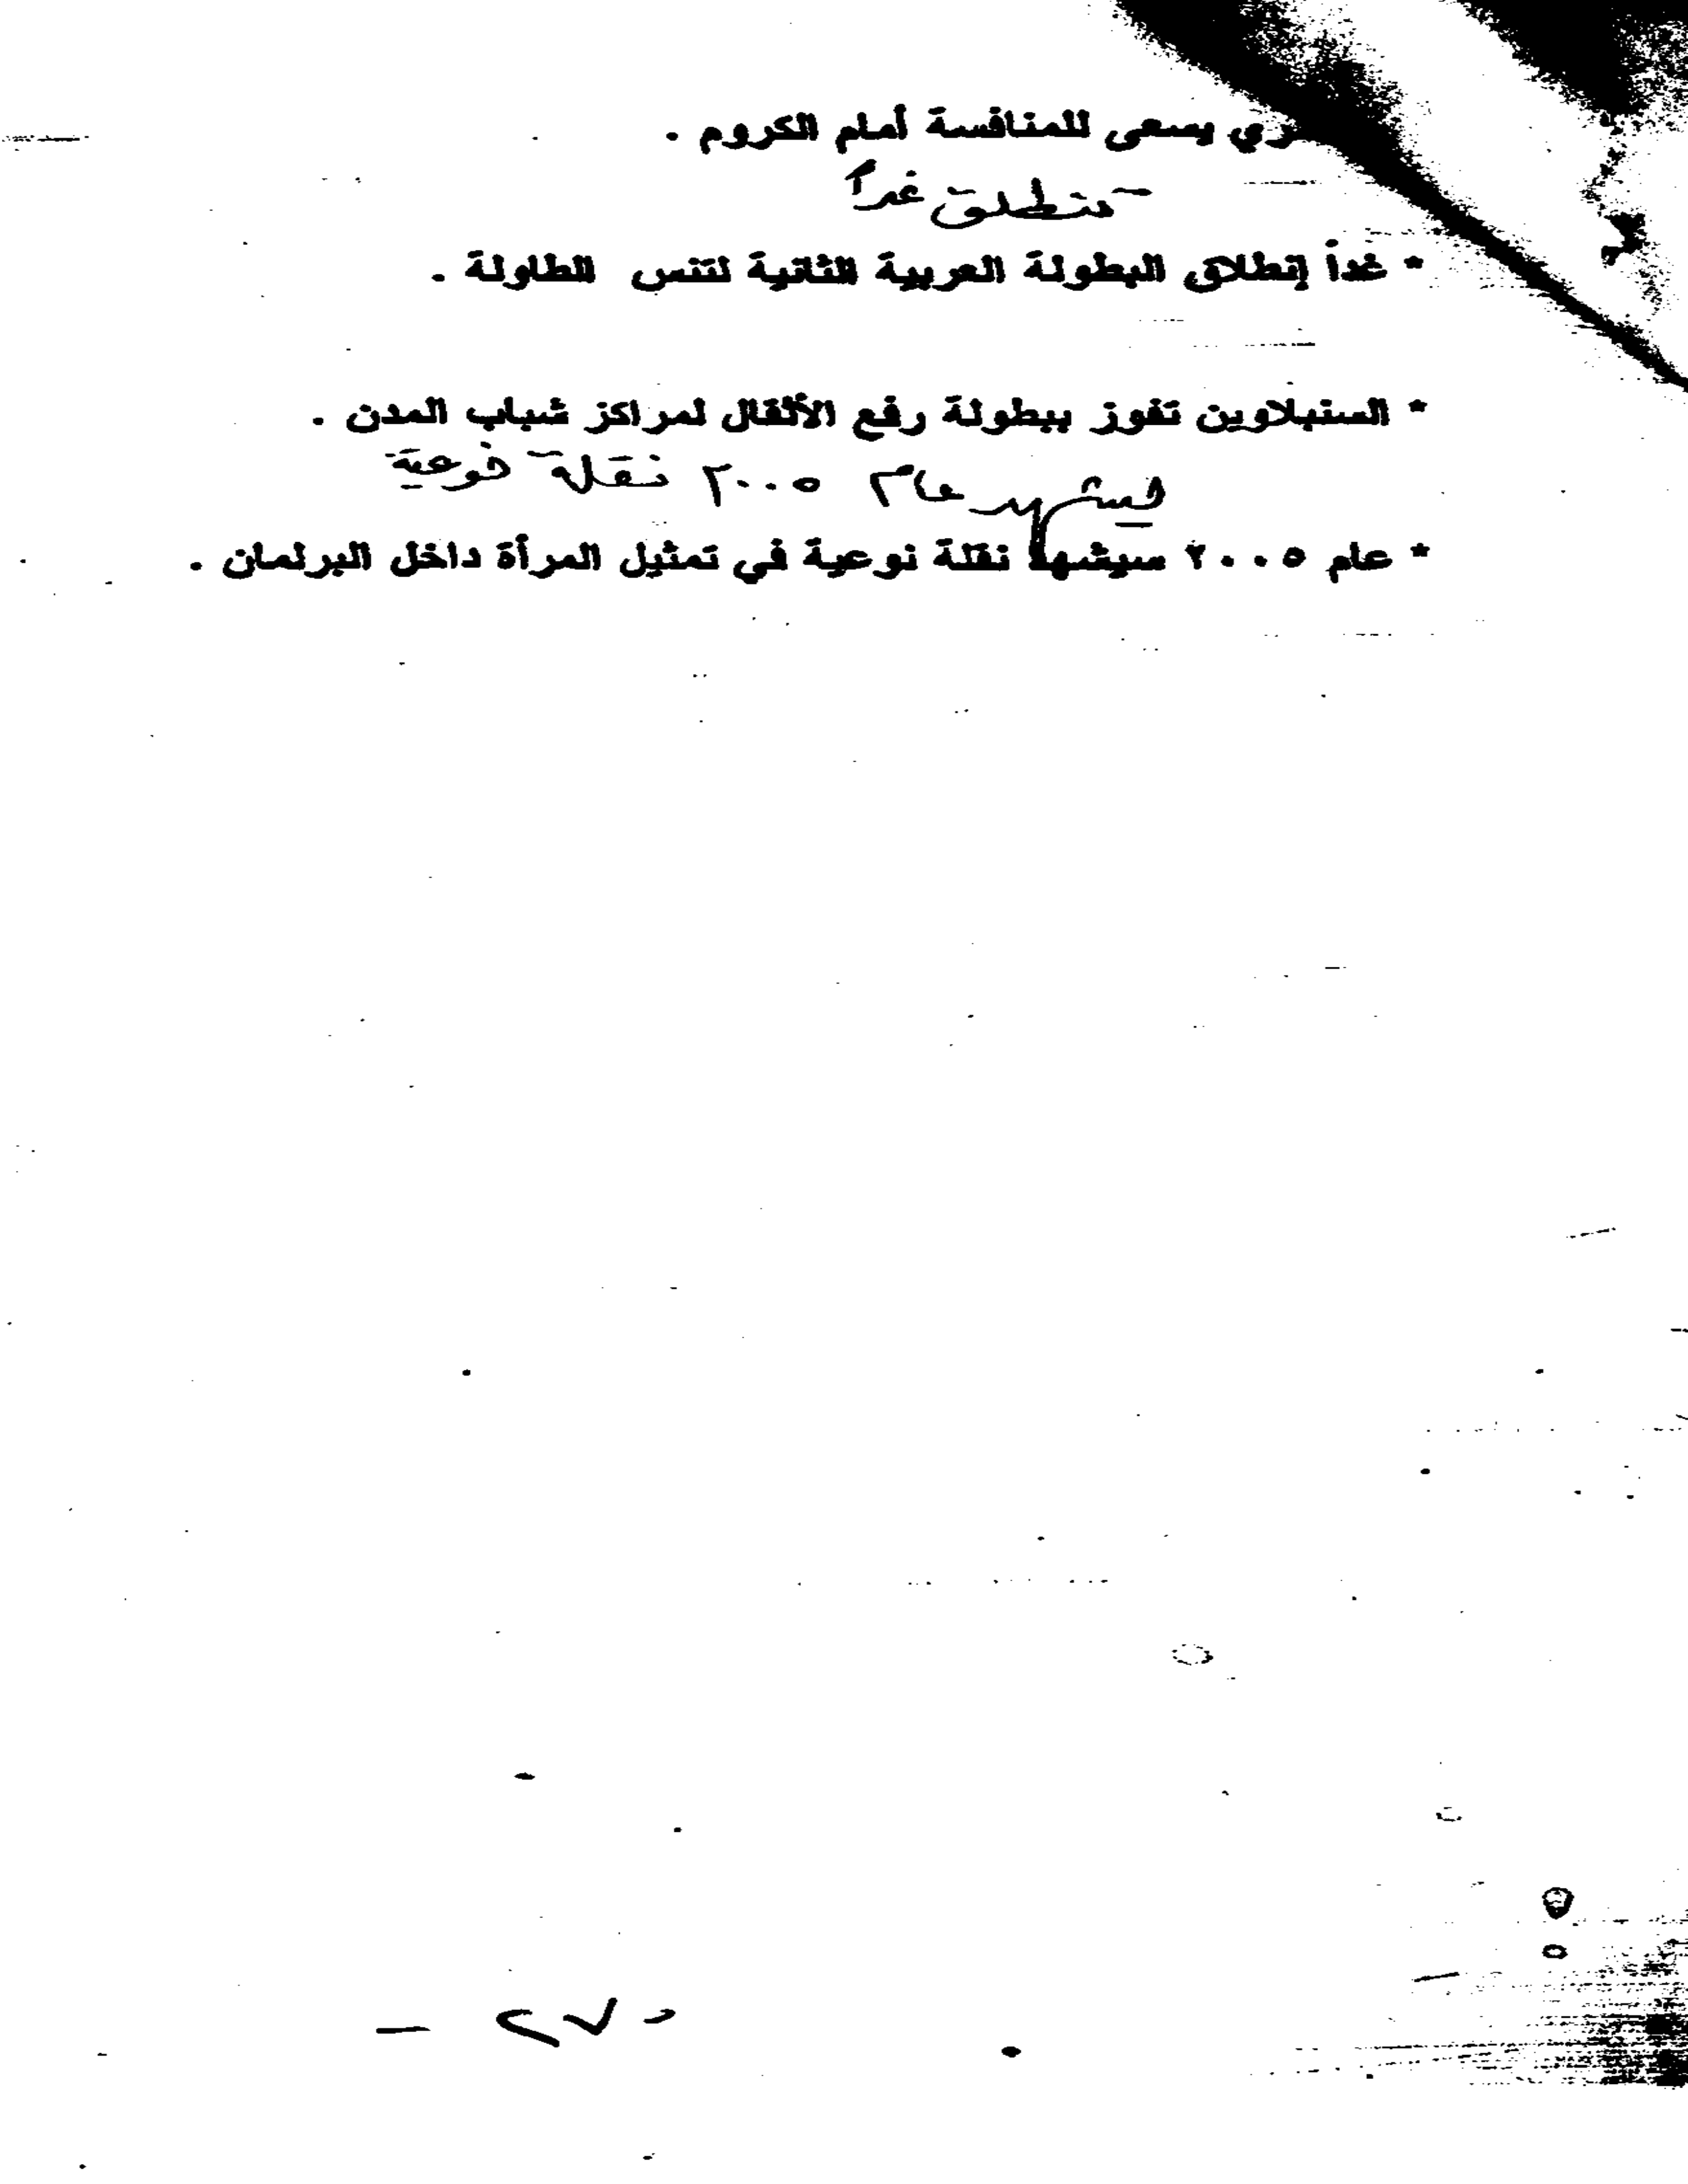 يسعى للمنافسة أمام الكروم .
تنطلق غداً
* غداً إنطلاق البطولة العربية الثانية لتنس الطاولة .
* السنبلاوين تفوز ببطولة رفع الأثقال لمراكز شباب المدن .
يشهد عام ٢٠٠٥ نقلة نوعية
* عام ٢٠٠٥ سيشهد نقلة نوعية في تمثيل المرأة داخل البرلمان .